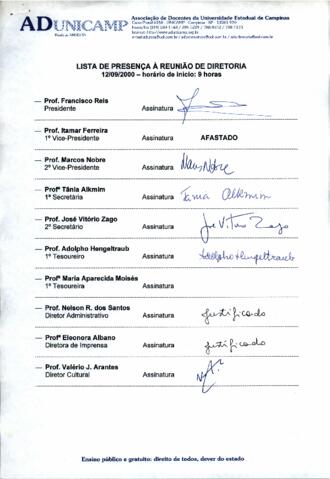 ADUNICAMP
Associação de Docentes da Universidade Estadual de Campinas
LISTA DE PRESENÇA À REUNIÃO DE DIRETORIA
12/09/2000 – horário de início: 9 horas
— Prof. Francisco Reis
Presidente Assinatura
— Prof. Itamar Ferreira
1º Vice-Presidente Assinatura AFASTADO
— Prof. Marcos Nobre
2º Vice-Presidente Assinatura Marcos Nobre
— Profª Tânia Alkmim
1ª Secretária Assinatura Tania Alkmim
— Prof. José Vitório Zago
2º Secretário Assinatura José Vitório Zago
— Prof. Adolpho Hengeltraub
1º Tesoureiro Assinatura Adolpho Hengeltraub
— Profª Maria Aparecida Moisés
1ª Tesoureira Assinatura
— Prof. Nelson R. dos Santos
Diretor Administrativo Assinatura justificado
— Profª Eleonora Albano
Diretora de Imprensa Assinatura justificado
— Prof. Valério J. Arantes
Diretor Cultural Assinatura
Ensino público e gratuito: direito de todos, dever do estado